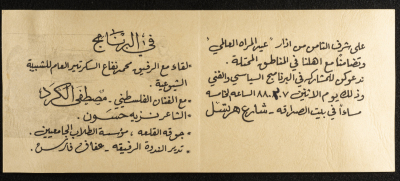 على شرف الثامن من اذار "عيد المراه العالمي"
وتضامناً مع اهلنا في المناطق المحتلة.
ندعوكن للمشاركه في البرنامج السياسي والفني
وذلك يوم الاثنين ٨٨.٣.٧ الساعه الخامسه
مساءاً في بيت الصداقه - شارع هرتسل
في البرنامج
- لقاء مع الرفيق محمد نفاع السكرتير العام للشبيبة
الشيوعية.
- مع الفنان الفلسطيني. مصطفى الكرد
- الشاعر نزيه حسون.
- جوقه القلعه، مؤسسة الطلاب الجامعيين.
- تدير الندوة الرفيقه - عفاف فارس.